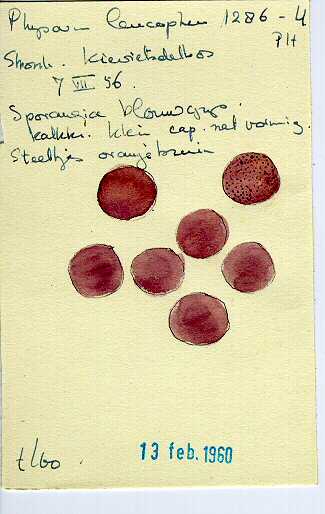 Physarum leucophaeum 1286 - 4
PH
Kievietsdelbos
7 VII 56.
Sporangia blauwgrijs.
kalkk. klein cap. netvormig.
Steeltjes oranjebruin
13 feb. 1960